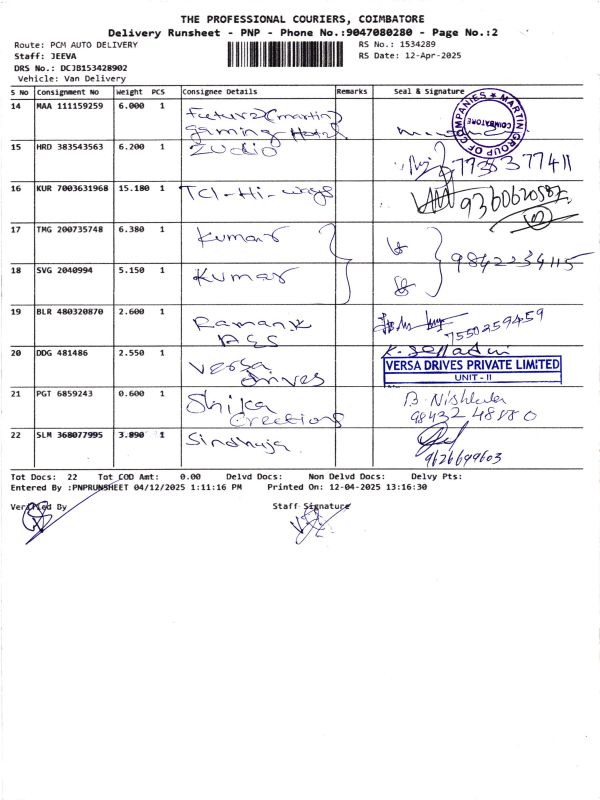 THE PROFESSIONAL COURIERS, COIMBATORE
Delivery Runsheet - PNP - Phone No.:9047080280 - Page No.:2
Route: PCM AUTO DELIVERY
RS No.: 1534289
Staff: JEEVA
RS Date: 12-Apr-2025
DRS No.: DCJB153428902
Vehicle: Van Delivery
S No Consignment No Weight PCS Consignee Details Remarks Seal & Signature
14 MAA 111159259 6.000 1 Future (martin)
gaming Hotel
MARTIN GROUP OF COMPANIES
COIMBATORE
15 HRD 383543563 6.200 1 Zudio 7738377411
16 KUR 7003631968 15.180 1 TCI-Hi-ways 9360620587
17 TMG 200735748 6.380 1 Kumar
9842234115
18 SVG 2040994 5.150 1 Kumar
19 BLR 480320870 2.600 1 Raman
7550259459
20 DDG 481486 2.550 1 Versa
drives
VERSA DRIVES PRIVATE LIMITED
UNIT - II
21 PGT 6859243 0.600 1 Shika
Creations
B. Nishkala
98432 48880
22 SLM 368077995 3.890 1 Sindhuja
9626699603
Tot Docs: 22 Tot COD Amt: 0.00 Delvd Docs: Non Delvd Docs: Delvy Pts:
Entered By :PNPRUNSHEET 04/12/2025 1:11:16 PM Printed On: 12-04-2025 13:16:30
Verified By Staff Signature